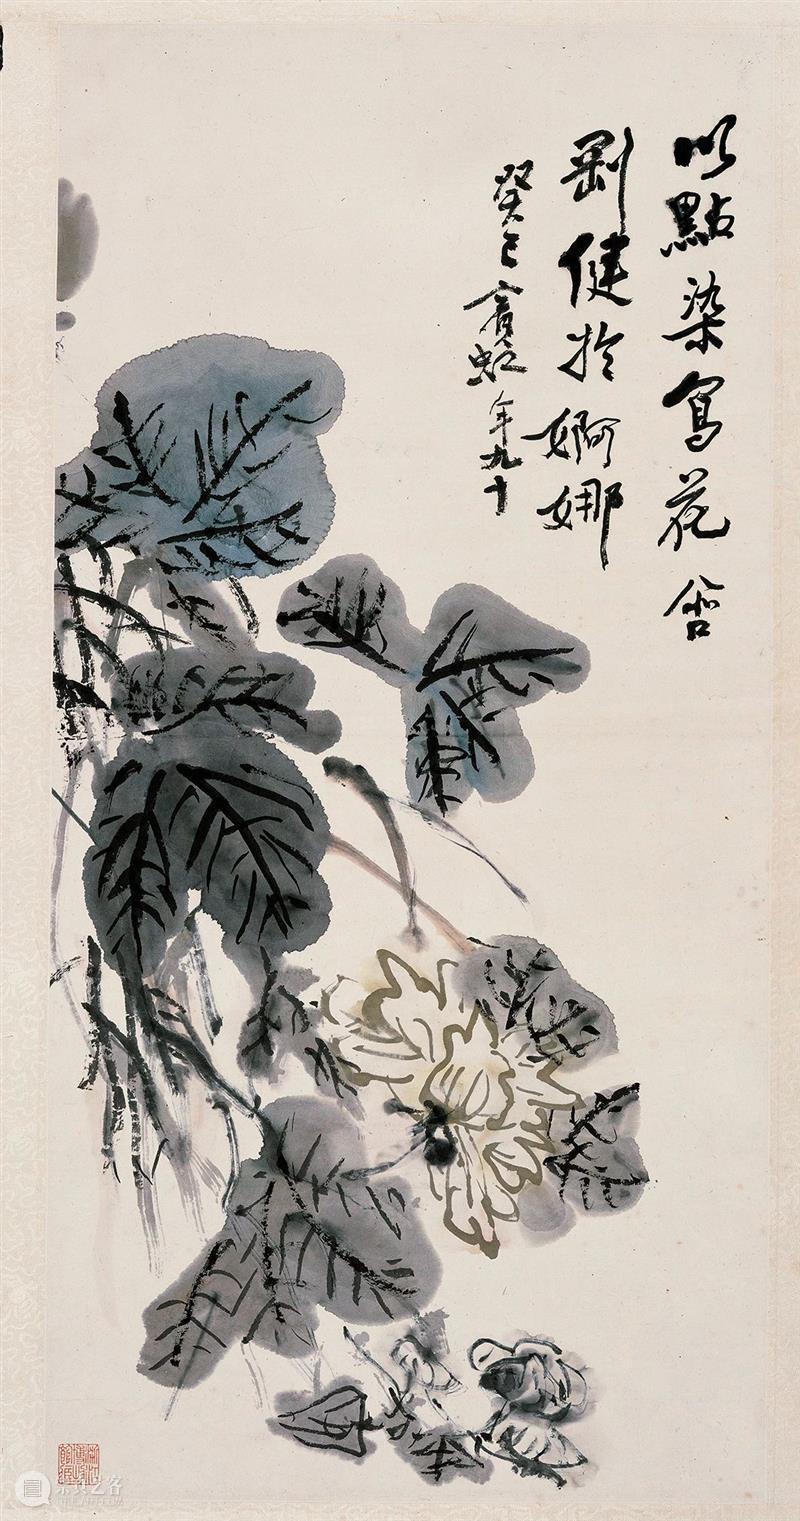 以點染寫花含
剛健於婀娜
癸巳賓虹年九十
崇真艺客